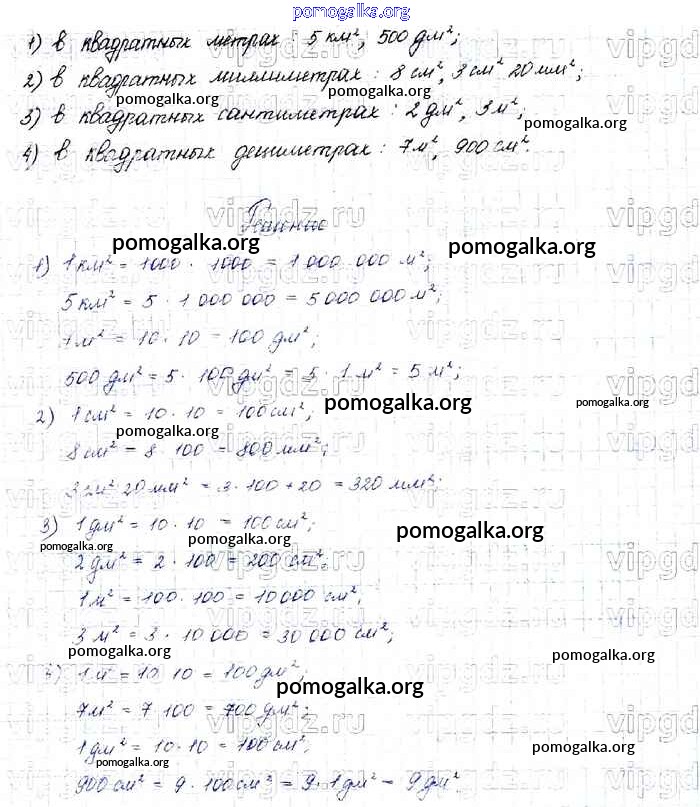 pomogalka.org
1) в квадратных метрах: 5 км², 500 дм²;
2) в квадратных миллиметрах: 8 см², 3 см² 20 мм²;
pomogalka.org pomogalka.org
3) в квадратных сантиметрах: 2 дм², 3 м²;
pomogalka.org
4) в квадратных дециметрах: 7 м², 900 см².
vipgdz.ru
Решение
pomogalka.org pomogalka.org
1) 1 км² = 1000 · 1000 = 1 000 000 м²;
5 км² = 5 · 1 000 000 = 5 000 000 м²;
1 м² = 10 · 10 = 100 дм²;
500 дм² = 5 · 100 дм² = 5 · 1 м² = 5 м²;
pomogalka.org pomogalka.org
2) 1 см² = 10 · 10 = 100 см²;
pomogalka.org
8 см² = 8 · 100 = 800 мм²;
3 см² 20 мм² = 3 · 100 + 20 = 320 мм²;
3) 1 дм² = 10 · 10 = 100 см²;
pomogalka.org pomogalka.org pomogalka.org
2 дм² = 2 · 100 = 200 см².
1 м² = 100 · 100 = 10000 см²;
3 м² = 3 · 10 000 = 30 000 см²;
pomogalka.org pomogalka.org
4) 1 м² = 10 10 = 100 дм²;
pomogalka.org
7 м² = 7 100 = 700 дм²;
1 дм² = 10 · 10 = 100 см²;
pomogalka.org pomogalka.org
900 см² = 9 · 100 см² = 9 · 1 дм² = 9 дм².